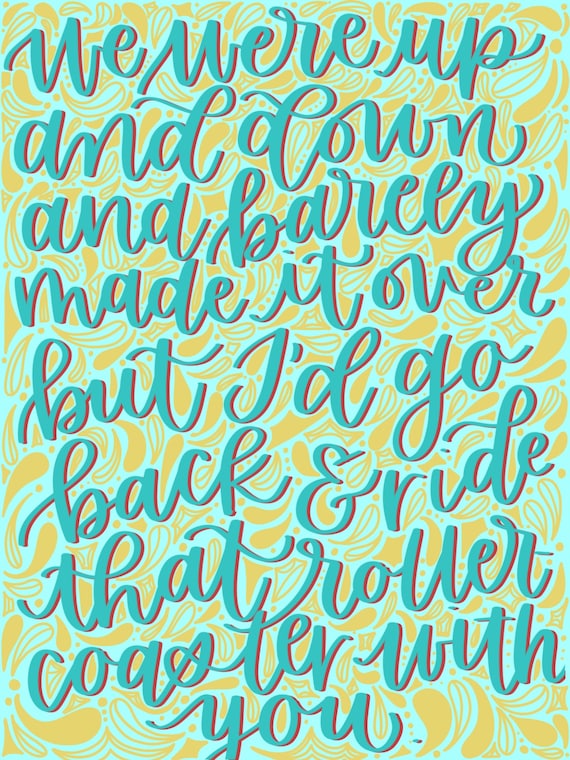 We were up
and down
and barely
made it over
but I'd go
back & ride
that roller
coaster with
you